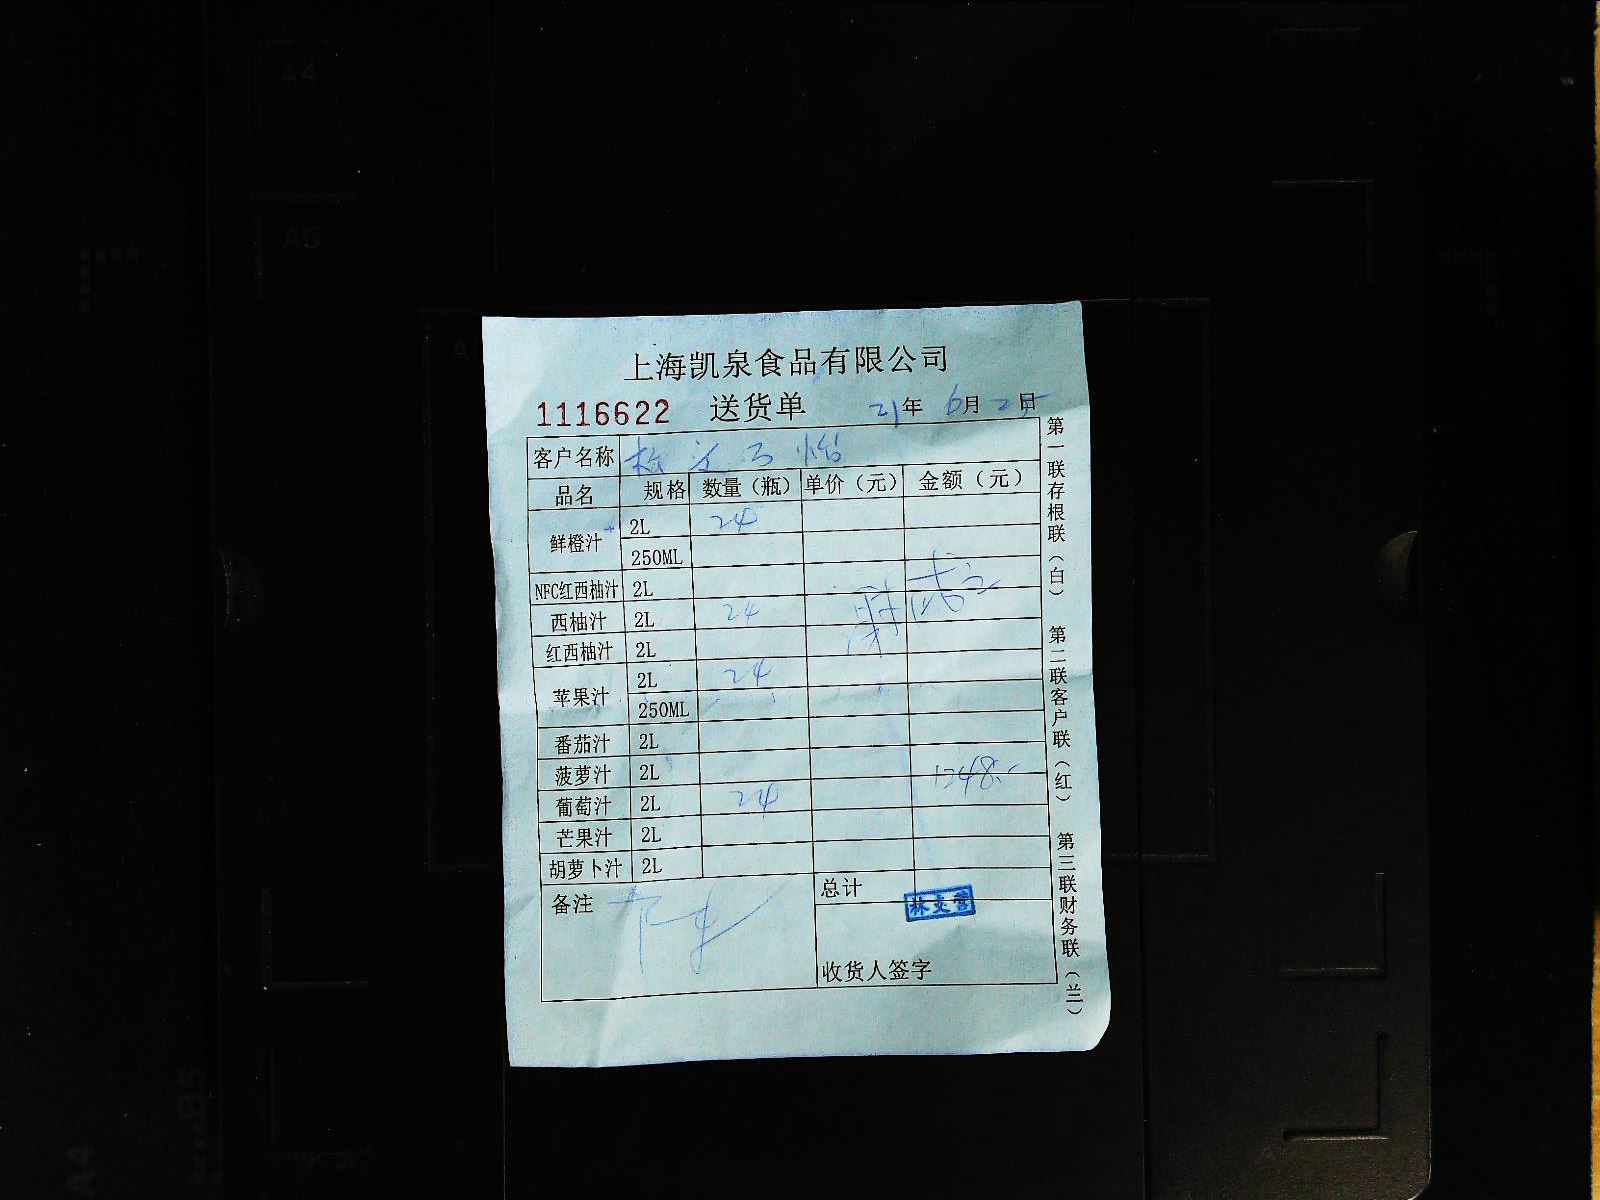 上海凯泉食品有限公司
1116622 送货单 21年 6月25日
客户名称
品名 规格 数量（瓶） 单价（元） 金额（元）
鲜橙汁 2L 24
250ML
NFC红西柚汁 2L
西柚汁 2L 24
红西柚汁 2L
苹果汁 2L 24
250ML
番茄汁 2L
菠萝汁 2L 1248.-
葡萄汁 2L 24
芒果汁 2L
胡萝卜汁 2L
备注 总计
林支营
收货人签字
第一联存根联（白） 第二联客户联（红） 第三联财务联（兰）
A4
A5
B5
A4